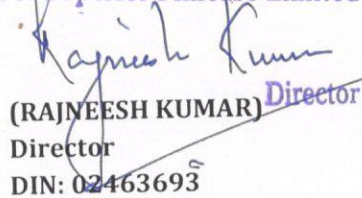 Limited
Rajneesh Kumar
(RAJNEESH KUMAR) Director
Director
DIN: 02463693